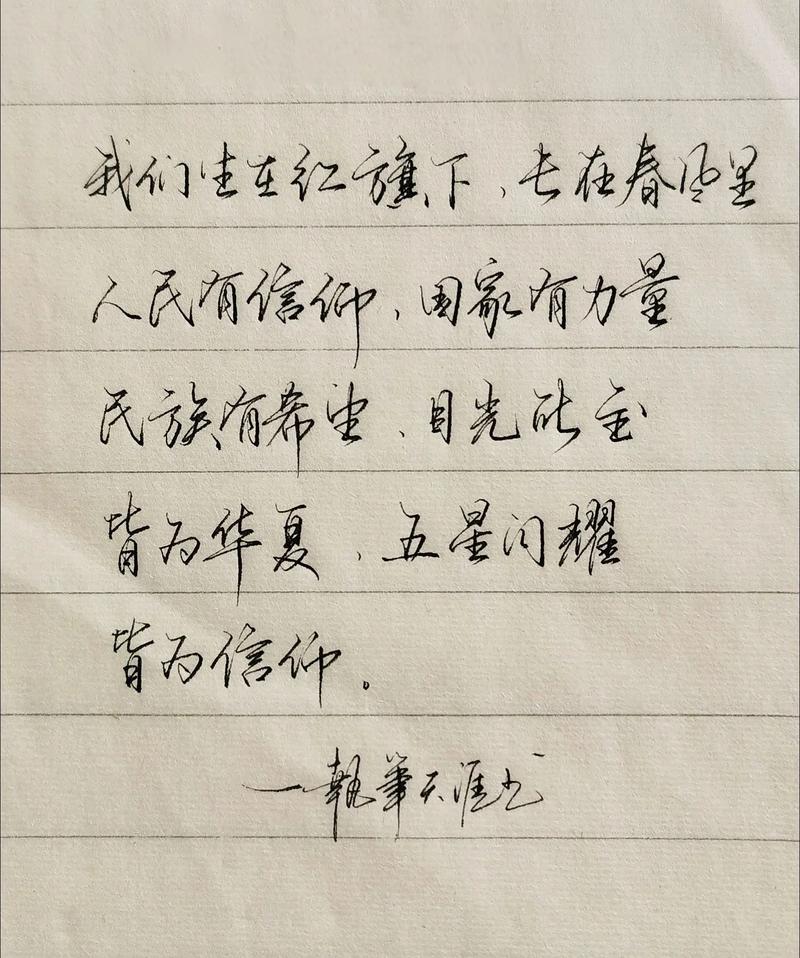 我们生在红旗下、长在春风里
人民有信仰、国家有力量
民族有希望、目光所至
皆为华夏、五星闪耀
皆为信仰。
一執筆天涯书